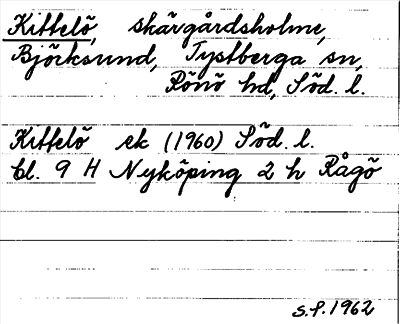 Kittelö, skärgårdsholme,
Björksund, Tystberga sn,
Rönö hd, Söd. l.
Kittelö ek (1960) Söd. l.
bl. 9 H Nyköping 2 h Rågö
S.P. 1962